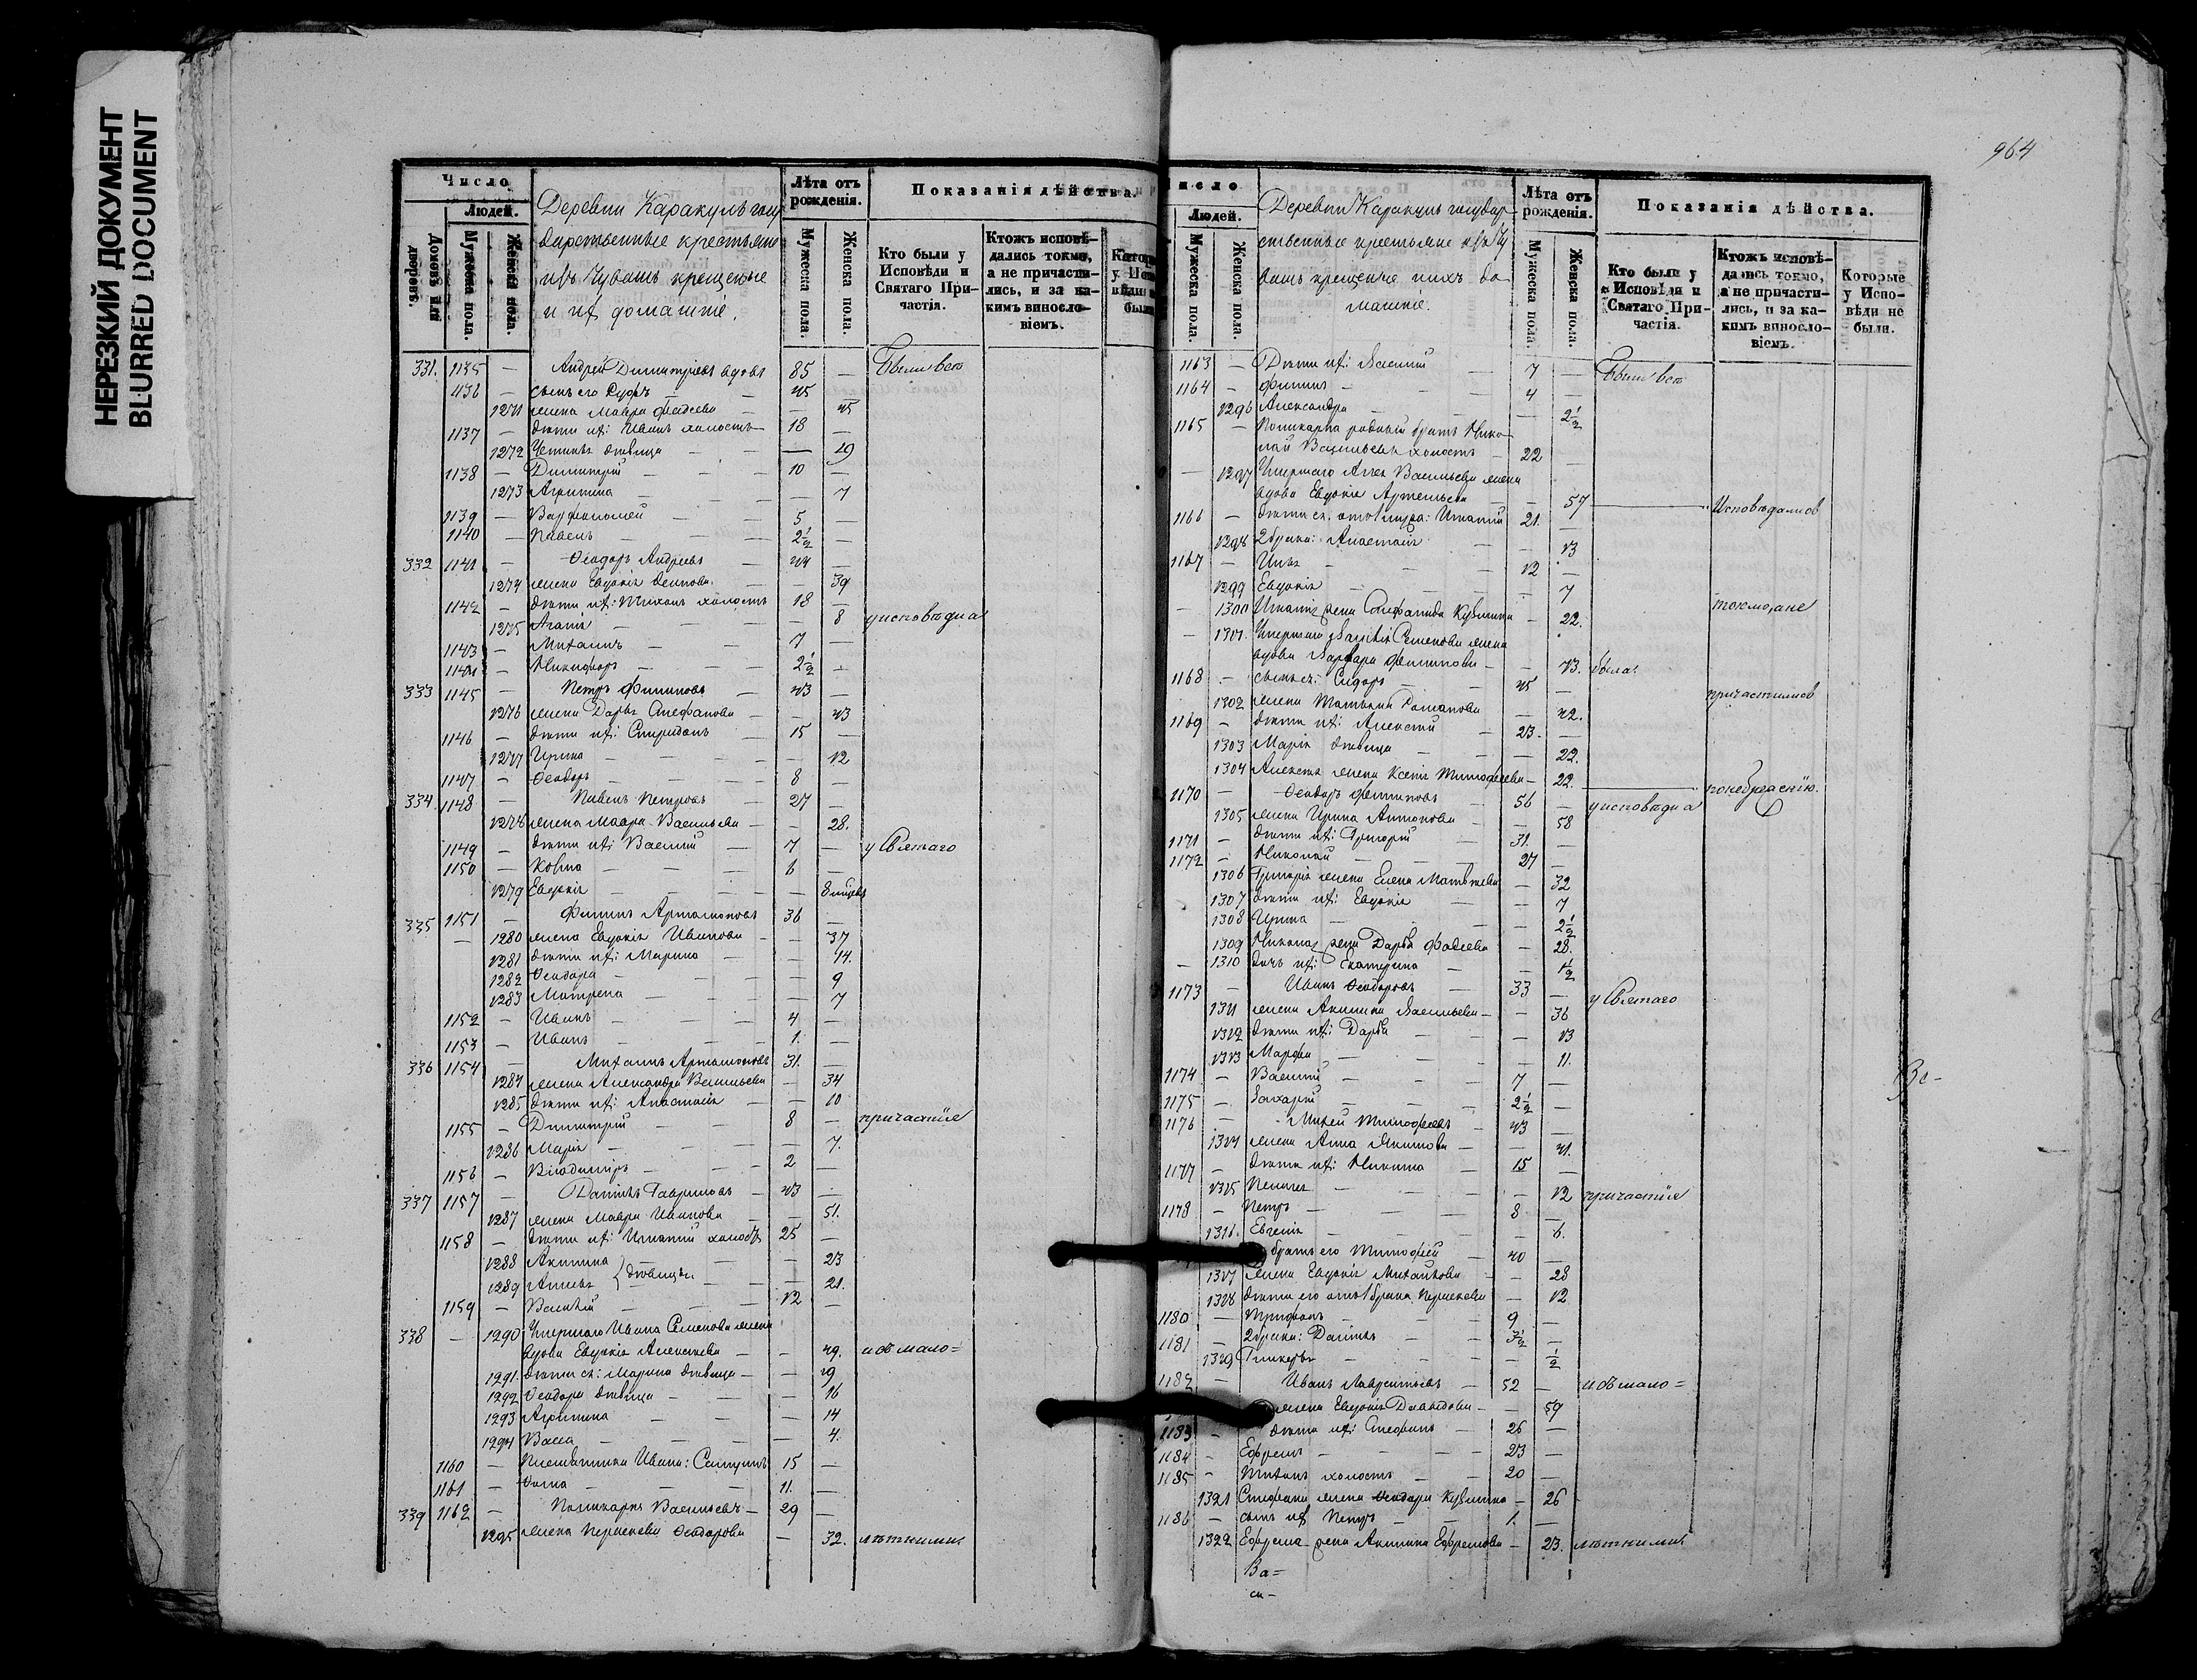 НЕРЕЗКИЙ ДОКУМЕНТ
BLURRED DOCUMENT
964
Число
Людей.
Домовъ или дворовъ.
Мужеска пола.
Женска пола.
Деревни Каракуль госу
дарственные крестьяне
изъ Чувашъ крещеные
и их домашніе.
Лѣта отъ рожденія.
Мужеска пола.
Женска пола.
Показанія дѣйства.
Кто были у Исповѣди и Святаго Причастія.
Ктожъ исповѣдались токмо, а не причастились, и за какимъ винословіемъ.
331. 1135 — Андрей Димитріевъ вдовъ 85 — Были всѣ
1136 — сынъ его 45
1271 жена Мавра Фадеева — — 45
1137 — дѣти их: Иванъ холостъ 18 —
1272 дѣвица — 19
1138 — Димитрій 10 —
1273 Агрипина — 7
1139 — Варфоломей 5 —
1140 — Павелъ 2½ —
332 1141 — Ѳеодоръ Андреевъ 44 —
1274 жена Евдокія — 39
1142 — дѣти их: Тихонъ холостъ 18 —
1275 Агафья — 8 у исповѣди и
1143 — Михаилъ 7 —
1144 — Никифоръ 2½ —
333 1145 — Петръ Филиповъ 43 —
1276 жена Дарья Стефанова — 43
1146 — дѣти их: Спиридонъ 15 —
1277 Ирина — 12
1147 — Ѳеодоръ 8 —
334. 1148 — Павелъ Петровъ 27 —
1278 жена Мавра Васильева — 28.
1149 — дѣти их: Василій 7 — у Святаго
1150 — Козма 6 —
1279 Евдокія — 8
335 1151 — Филипъ Артамоновъ 36 —
— 1280 жена Евдокія Иванова — 37
1281 дѣти их: Марина — 14.
1282 Ѳеодора — 9
1283 Матрена — 7
1152 — Иванъ 4 —
1153 — Иванъ 1. —
336 1154 — Михаилъ Артамоновъ 31. —
1284 жена Александра Васильева — 34
1285 дѣти их: Анастасія — 10
1155 — Димитрій 8 — причастія
1286 Марія — 7.
1156 — Владиміръ 2 —
337 1157 — Даніилъ Гавриловъ 43 —
1287 жена Мавра Иванова — 51.
1158 — дѣти их: Игнатій холостъ 25 —
1288 Акилина — 23
1289 дѣвицы — 21.
1159 — Василій 12 —
338 — 1290 Умершаго Ивана Семенова жена
вдова Евдокія Алексѣева — — 49. и съ мало=
1291. дѣти ея: Марина дѣвица — — 19
1292 Ѳеодора дѣвица — — 16
1293 Агрипина — 14
1294 Васса — 4.
1160 — Племянники Ивана: 15 —
1161 — Ѳома 11. —
339 1162 — Поликарпъ Васильевъ 29 —
1295 жена Ѳеодорова — 32. лѣтними.
Число
Людей.
Мужеска пола.
Женска пола.
Деревни Каракуль государ
ственные крестьяне изъ Чу
вашъ крещеные и ихъ до
машніе.
Лѣта отъ рожденія.
Мужеска пола.
Женска пола.
Показанія дѣйства.
Кто были у Исповѣди и Святаго Причастія.
Ктожъ исповѣдались токмо, а не причастились, и за какимъ винословіемъ.
Которые у Исповѣди не были.
1163 — Дѣти их: Василій 7 — Были всѣ
1164 — Филипъ 4 —
1296 Александра — 2½
1165 — Поликарпа родный братъ Нико
лай Васильевъ холостъ 22 —
— 1297 Умершаго Васильева жена
вдова Евдокія Артемьева — 57 Исповѣдались
1166 — дѣти ея отъ 1 мужа: Игнатій 21. —
1298 2 брака: Анастасія — 13
1167 — 12 —
1299 Евдокія — 7
— 1300 Игнатія жена Стефанида Кузмина — 22. токмо, а не
— 1301. Умершаго Семенова жена
вдова Варвара Филипова — 73. была.
1168 — сынъ ея: Сидоръ 45 — причастились
1302 жена Татьяна Романова — 42.
1169 — дѣти их: Алексѣй 23. —
1303 Марія дѣвица — 22.
1304 Алексѣя жена Ксенія Тимофеева — 22. по небреженію.
1170 — Ѳеодоръ Филиповъ 56 — у исповѣди и
1305 жена Ирина Антонова — 58
1171 — дѣти их: Григорій 31. —
1172 — Николай 27 —
1306 Григорія жена Елена Матвѣева — 32
1307 дѣти их: Евдокія — 7
1308 Ирина — 2½
1309 Николая жена Дарья Фадеева — 28.
— 1310 дочь их: Екатерина — ½
1173 — Иванъ Ѳеодоровъ 33 — у Святаго
1311 жена Акилина Васильева — 36
1312 дѣти их: Дарья — 13
1313 Марфа — 11.
1174 — Василій 7 —
1175 — Захарій 2½ —
1176 — Михей Тимофеевъ 43 —
1314 жена Анна Якимова — 41.
1177 — дѣти их: Никита 15 —
1315 — 12 причастія
1178 — Петръ 8 —
1316. Евгенія — 6.
братъ его Тимофей 40 —
1317 жена Евдокія Михайлова — 28
1318 дѣти его отъ 1 брака — 12
1180 — Трифонъ 9 —
1181 — 2 брака: Даніилъ 3½ —
1319 Гликерья — ½
1182 — Иванъ Лаврентьевъ 52 — и съ мало=
жена Евдокія Давыдова — 59
1183 — дѣти их: Стефанъ 26 —
1184 — Ефремъ 23 —
1185 — Тихонъ холостъ 20 —
1321 Стефана жена Ѳеодора Кузмина — 26
1186 — сынъ их Петръ 1. —
1322 Ефрема жена Акилина Ефремова — 23. лѣтними.
Ва=
си-